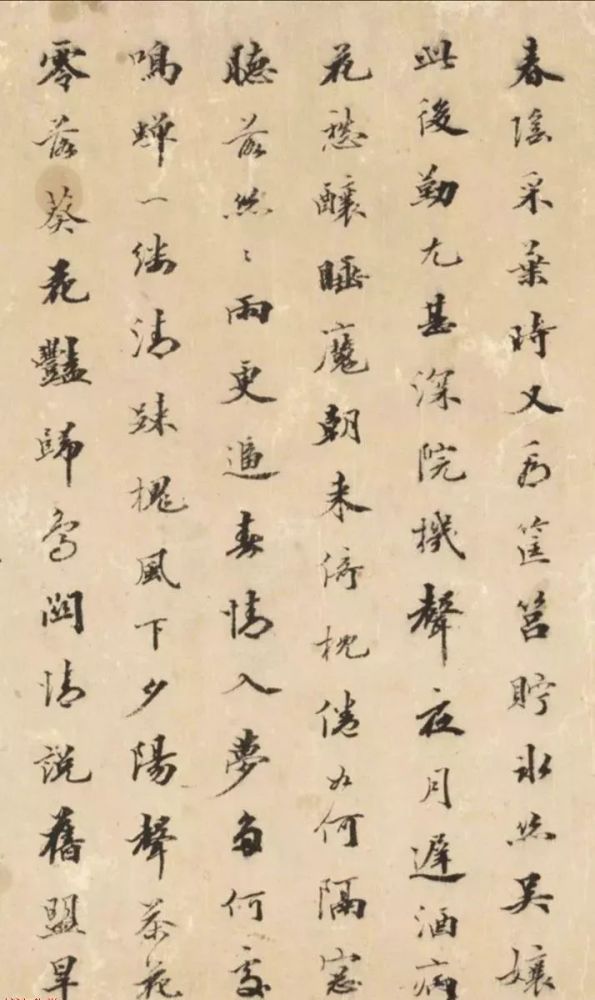 春陰采葉時又為筐筥貯冰絲吳孃
此後勤尤甚深院機聲夜月遲酒病
花愁釀睡魔朝來倚枕倦如何隔窗
聽落絲〻雨更逼春情入夢多何處
鳴蟬一縷清疎槐風下夕陽聲茶花
零落葵花豔歸鳥關情說舊盟早